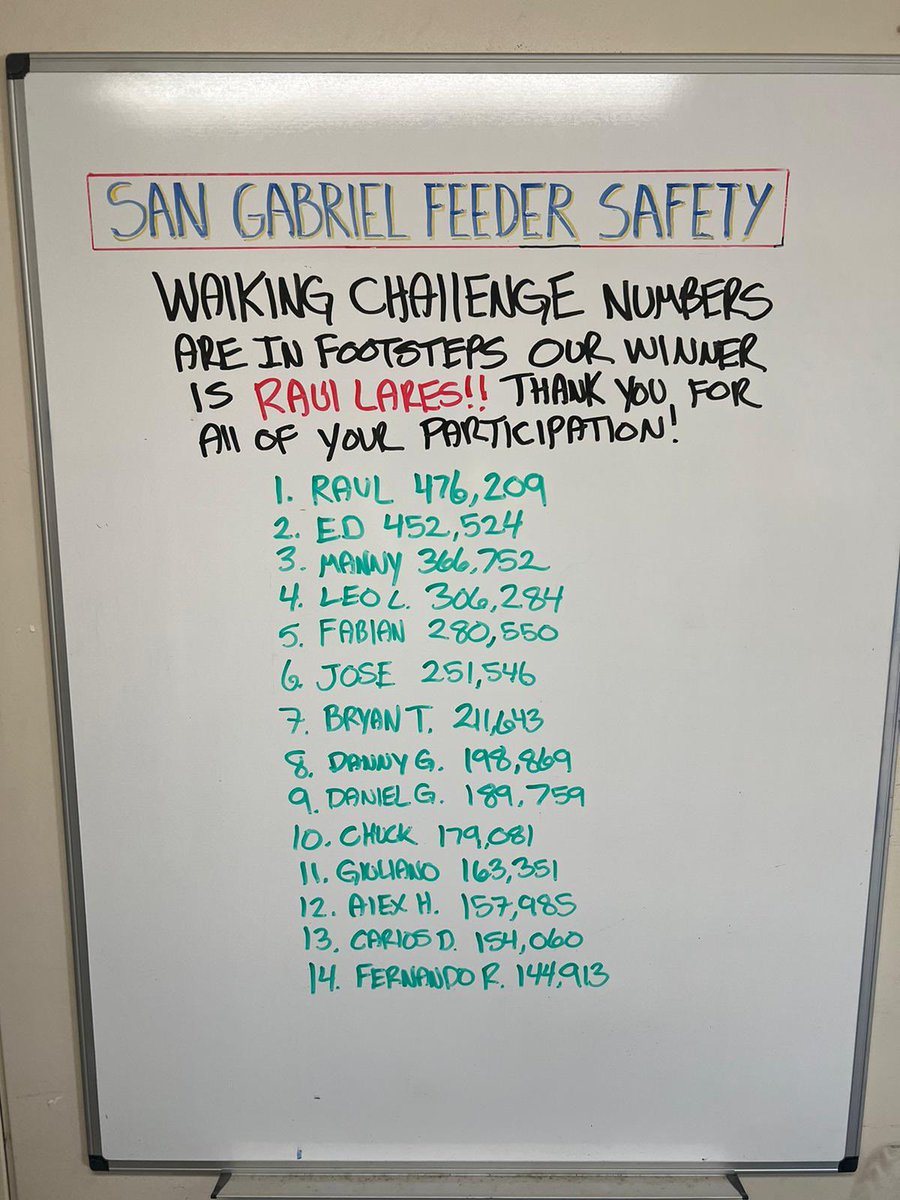 SAN GABRIEL FEEDER SAFETY
WALKING CHALLENGE NUMBERS
ARE IN FOOTSTEPS OUR WINNER
IS RAUL LARES!! THANK YOU FOR
All OF YOUR PARTICIPATION!
1. RAUL 476,209
2. ED 452,524
3. MANNY 366,752
4. LEO L. 306,284
5. FABIAN 280,550
6. JOSE 251,546
7. BRYAN T. 211,643
8. DANNY G. 198,869
9. DANIEL G. 189,759
10. CHUCK 179,081
11. GIULIANO 163,351
12. AlEX H. 157,985
13. CARlOS D. 154,060
14. FERNANDO R. 144,913